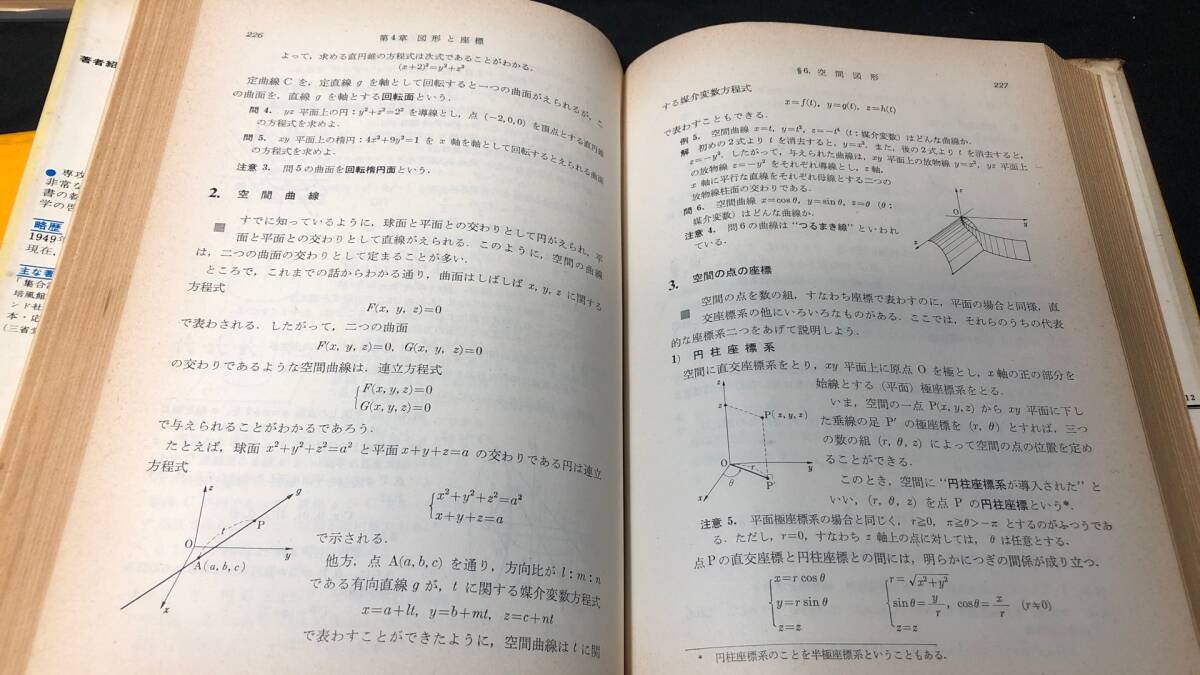 著者紹
● 専攻
非常な
書の執
学の啓
略歴
1949年
現在,
主な著
「集合
培風館
ンド社
本・応
(三省堂
226
第4章 図形と座標
よって, 求める直円錐の方程式は次式であることがわかる.
(x+2)²=y²+z²
定曲線 C を, 定直線 g を軸として回転すると一つの曲面がえられるが, こ
の曲面を, 直線 g を軸とする回転面という.
問 4. yz 平面上の円: y²+z²=2² を導線とし, 点 (-2,0,0) を頂点とする直円錐
の方程式を求めよ.
問 5. xy 平面上の楕円: 4x²+9y²=1 を x 軸を軸として回転するとえられる曲面
の方程式を求めよ.
注意 3. 問5の曲面を回転楕円面という.
2. 空間曲線
■ すでに知っているように, 球面と平面との交わりとして円がえられ, 平
面と平面との交わりとして直線がえられる. このように, 空間の曲線
は, 二つの曲面の交わりとして定まることが多い.
ところで, これまでの話からわかる通り, 曲面はしばしば x, y, z に関する
方程式
F(x, y, z)=0
で表わされる. したがって, 二つの曲面
F(x, y, z)=0, G(x, y, z)=0
の交わりであるような空間曲線は, 連立方程式
F(x, y, z)=0
G(x, y, z)=0
で与えられることがわかるであろう.
たとえば, 球面 x²+y²+z²=a² と平面 x+y+z=a の交わりである円は連立
方程式
x²+y²+z²=a²
x+y+z=a
で示される.
z
g
P
t
O
y
A(a, b, c)
x
他方, 点 A(a, b, c) を通り, 方向比が l : m : n
である有向直線 g が, t に関する媒介変数方程式
x=a+lt, y=b+mt, z=c+nt
で表わすことができたように, 空間曲線は t に関
§6. 空間図形
227
する媒介変数方程式
x=f(t), y=g(t), z=h(t)
で表わすこともできる.
例 5. 空間曲線 x=t, y=t², z=-t⁴ (t: 媒介変数) はどんな曲線か.
解 初めの2式より t を消去すると, y=x². また, 後の2式より t を消去すると,
z=-y². したがって, 与えられた曲線は, xy 平面上の放物線 y=x², yz 平面上
の放物線 z=-y² をそれぞれ導線とし, z軸,
x 軸に平行な直線をそれぞれ母線とする二つの
放物線柱面の交わりである.
問 6. 空間曲線 x=cosθ, y=sinθ, z=θ (θ:
媒介変数) はどんな曲線か.
注意 4. 問6の曲線は“つるまき線”といわれ
ている.
z
O
y
x
3. 空間の点の座標
■ 空間の点を数の組, すなわち座標で表わすのに, 平面の場合と同様, 直
交座標系の他にいろいろなものがある. ここでは, それらのうちの代表
的な座標系二つをあげて説明しよう.
1) 円柱座標系
空間に直交座標系をとり, xy 平面上に原点 O を極とし, x 軸の正の部分を
始線とする (平面) 極座標系をとる.
z
z
P(x, y, z)
O
y
r
θ
x
P′
いま, 空間の一点 P(x, y, z) から xy 平面に下し
た垂線の足 P′ の極座標を (r, θ) とすれば, 三つ
の数の組 (r, θ, z) によって空間の点の位置を定め
ることができる.
このとき, 空間に “円柱座標系が導入された” と
いい, (r, θ, z) を点 P の円柱座標という*.
注意 5. 平面極座標系の場合と同じく, r≧0, π≧θ>-π とするのがふつうであ
る. ただし, r=0, すなわち z 軸上の点に対しては, θ は任意とする.
点Pの直交座標と円柱座標との間には, 明らかにつぎの関係が成り立つ.
x=r cosθ
y=r sinθ
z=z
r=√x²+y²
sinθ=y/r, cosθ=x/r (r≠0)
z=z
* 円柱座標系のことを半極座標系ということもある.
12